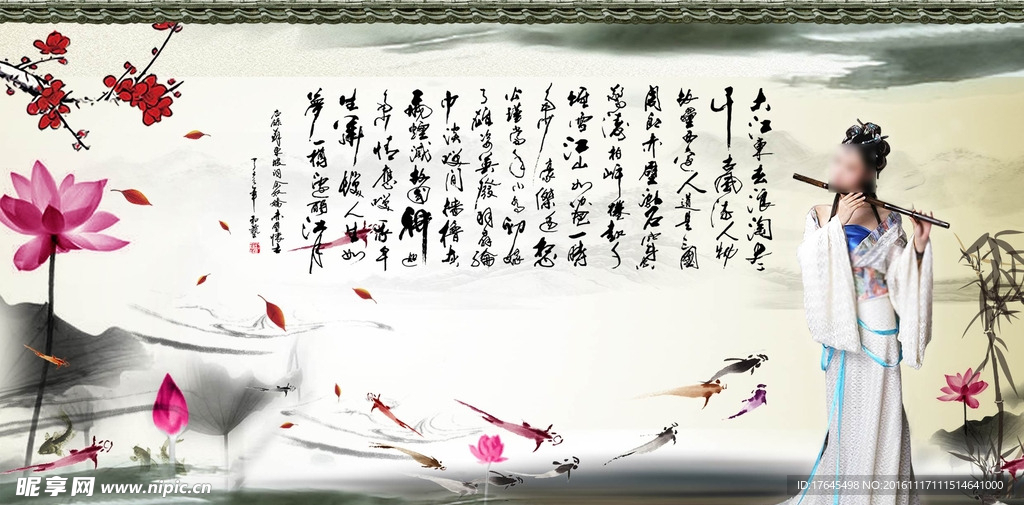 大江東去浪淘盡
千古風流人物
故壘西邊人道是三國
周郎赤壁亂石穿空
驚濤拍岸捲起千
堆雪江山如畫一時
多少豪傑遥想
公瑾當年小喬初嫁
了雄姿英發羽扇綸
巾談笑間檣櫓灰
飛煙滅故國神遊
多情應笑我早
生華髮人生如
夢一樽還酹江月
蘇東坡詞念奴嬌赤壁懷古
昵享网 www.nipic.cn
ID:17645498 NO:20161117111514641000